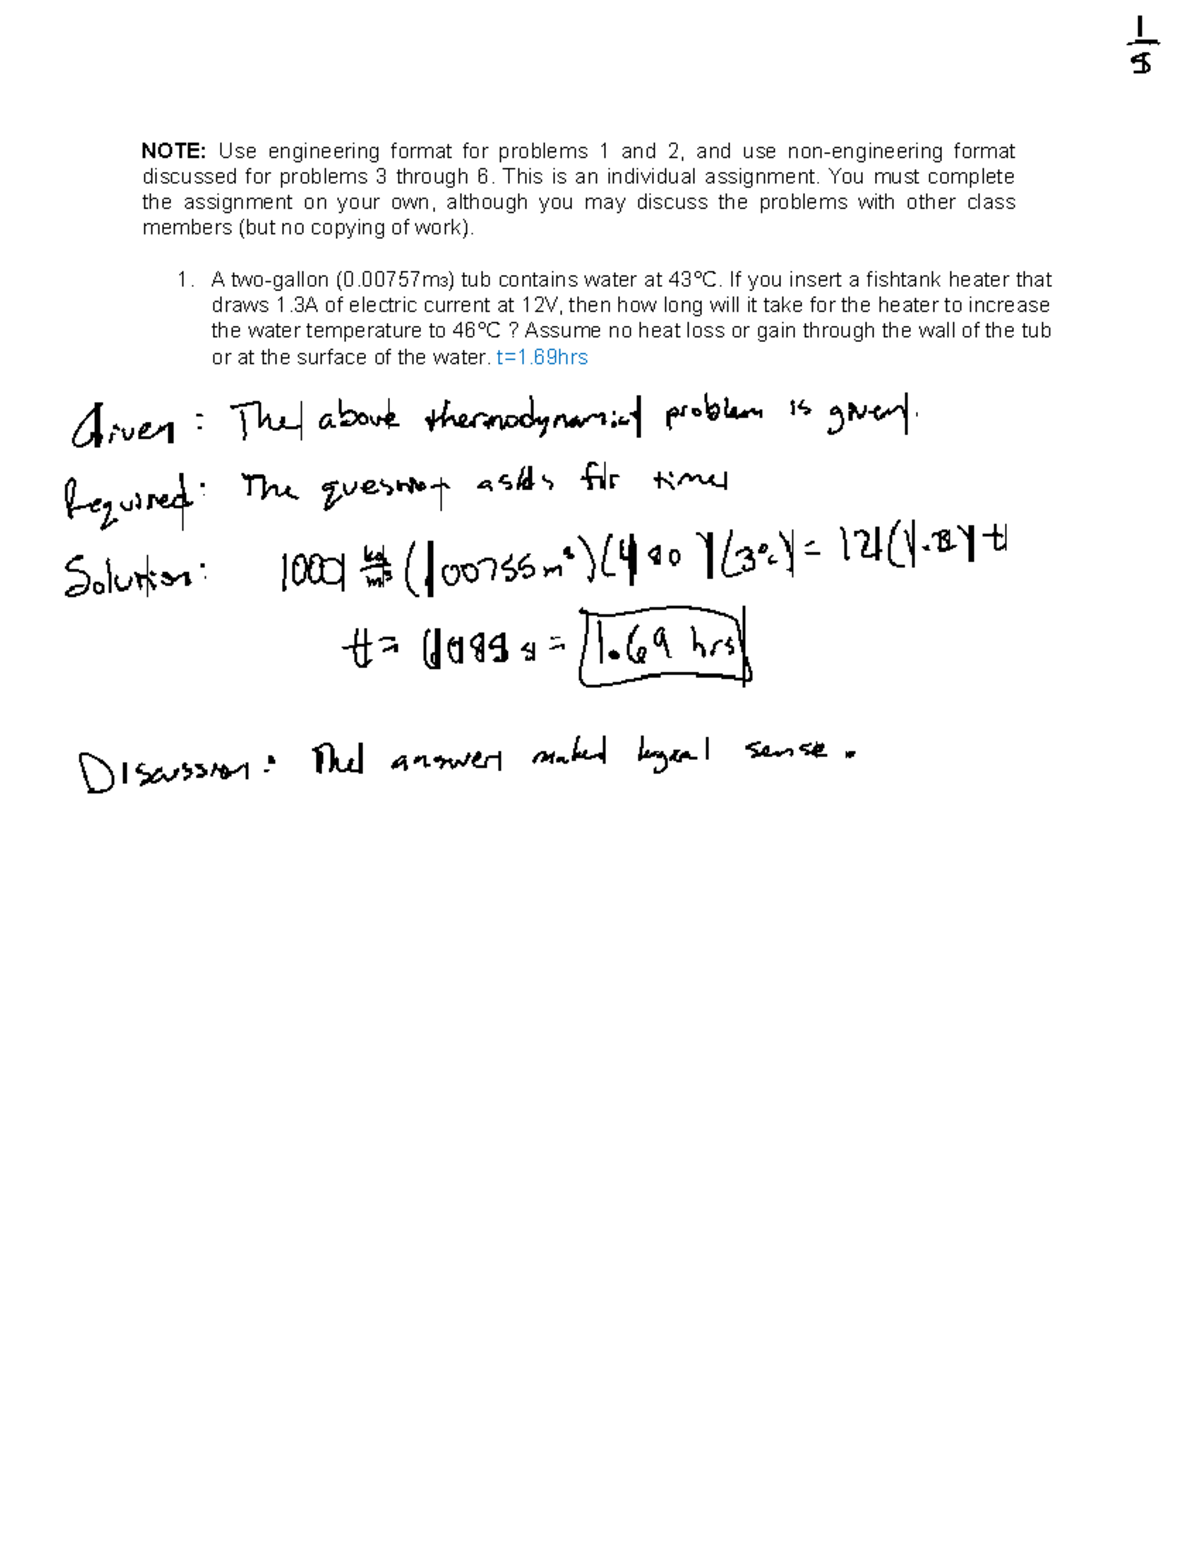 1
5
NOTE: Use engineering format for problems 1 and 2, and use non-engineering format
discussed for problems 3 through 6. This is an individual assignment. You must complete
the assignment on your own, although you may discuss the problems with other class
members (but no copying of work).
1. A two-gallon (0.00757m3) tub contains water at 43°C. If you insert a fishtank heater that
draws 1.3A of electric current at 12V, then how long will it take for the heater to increase
the water temperature to 46°C ? Assume no heat loss or gain through the wall of the tub
or at the surface of the water. t=1.69hrs
Given: The above thermodynamic problem is given.
Required: The question asks for time
Solution: 1000 kg/m³ (.00755m³) (3°C) = t
t = = 1.69 hrs
Discussion: The answer logical sense.